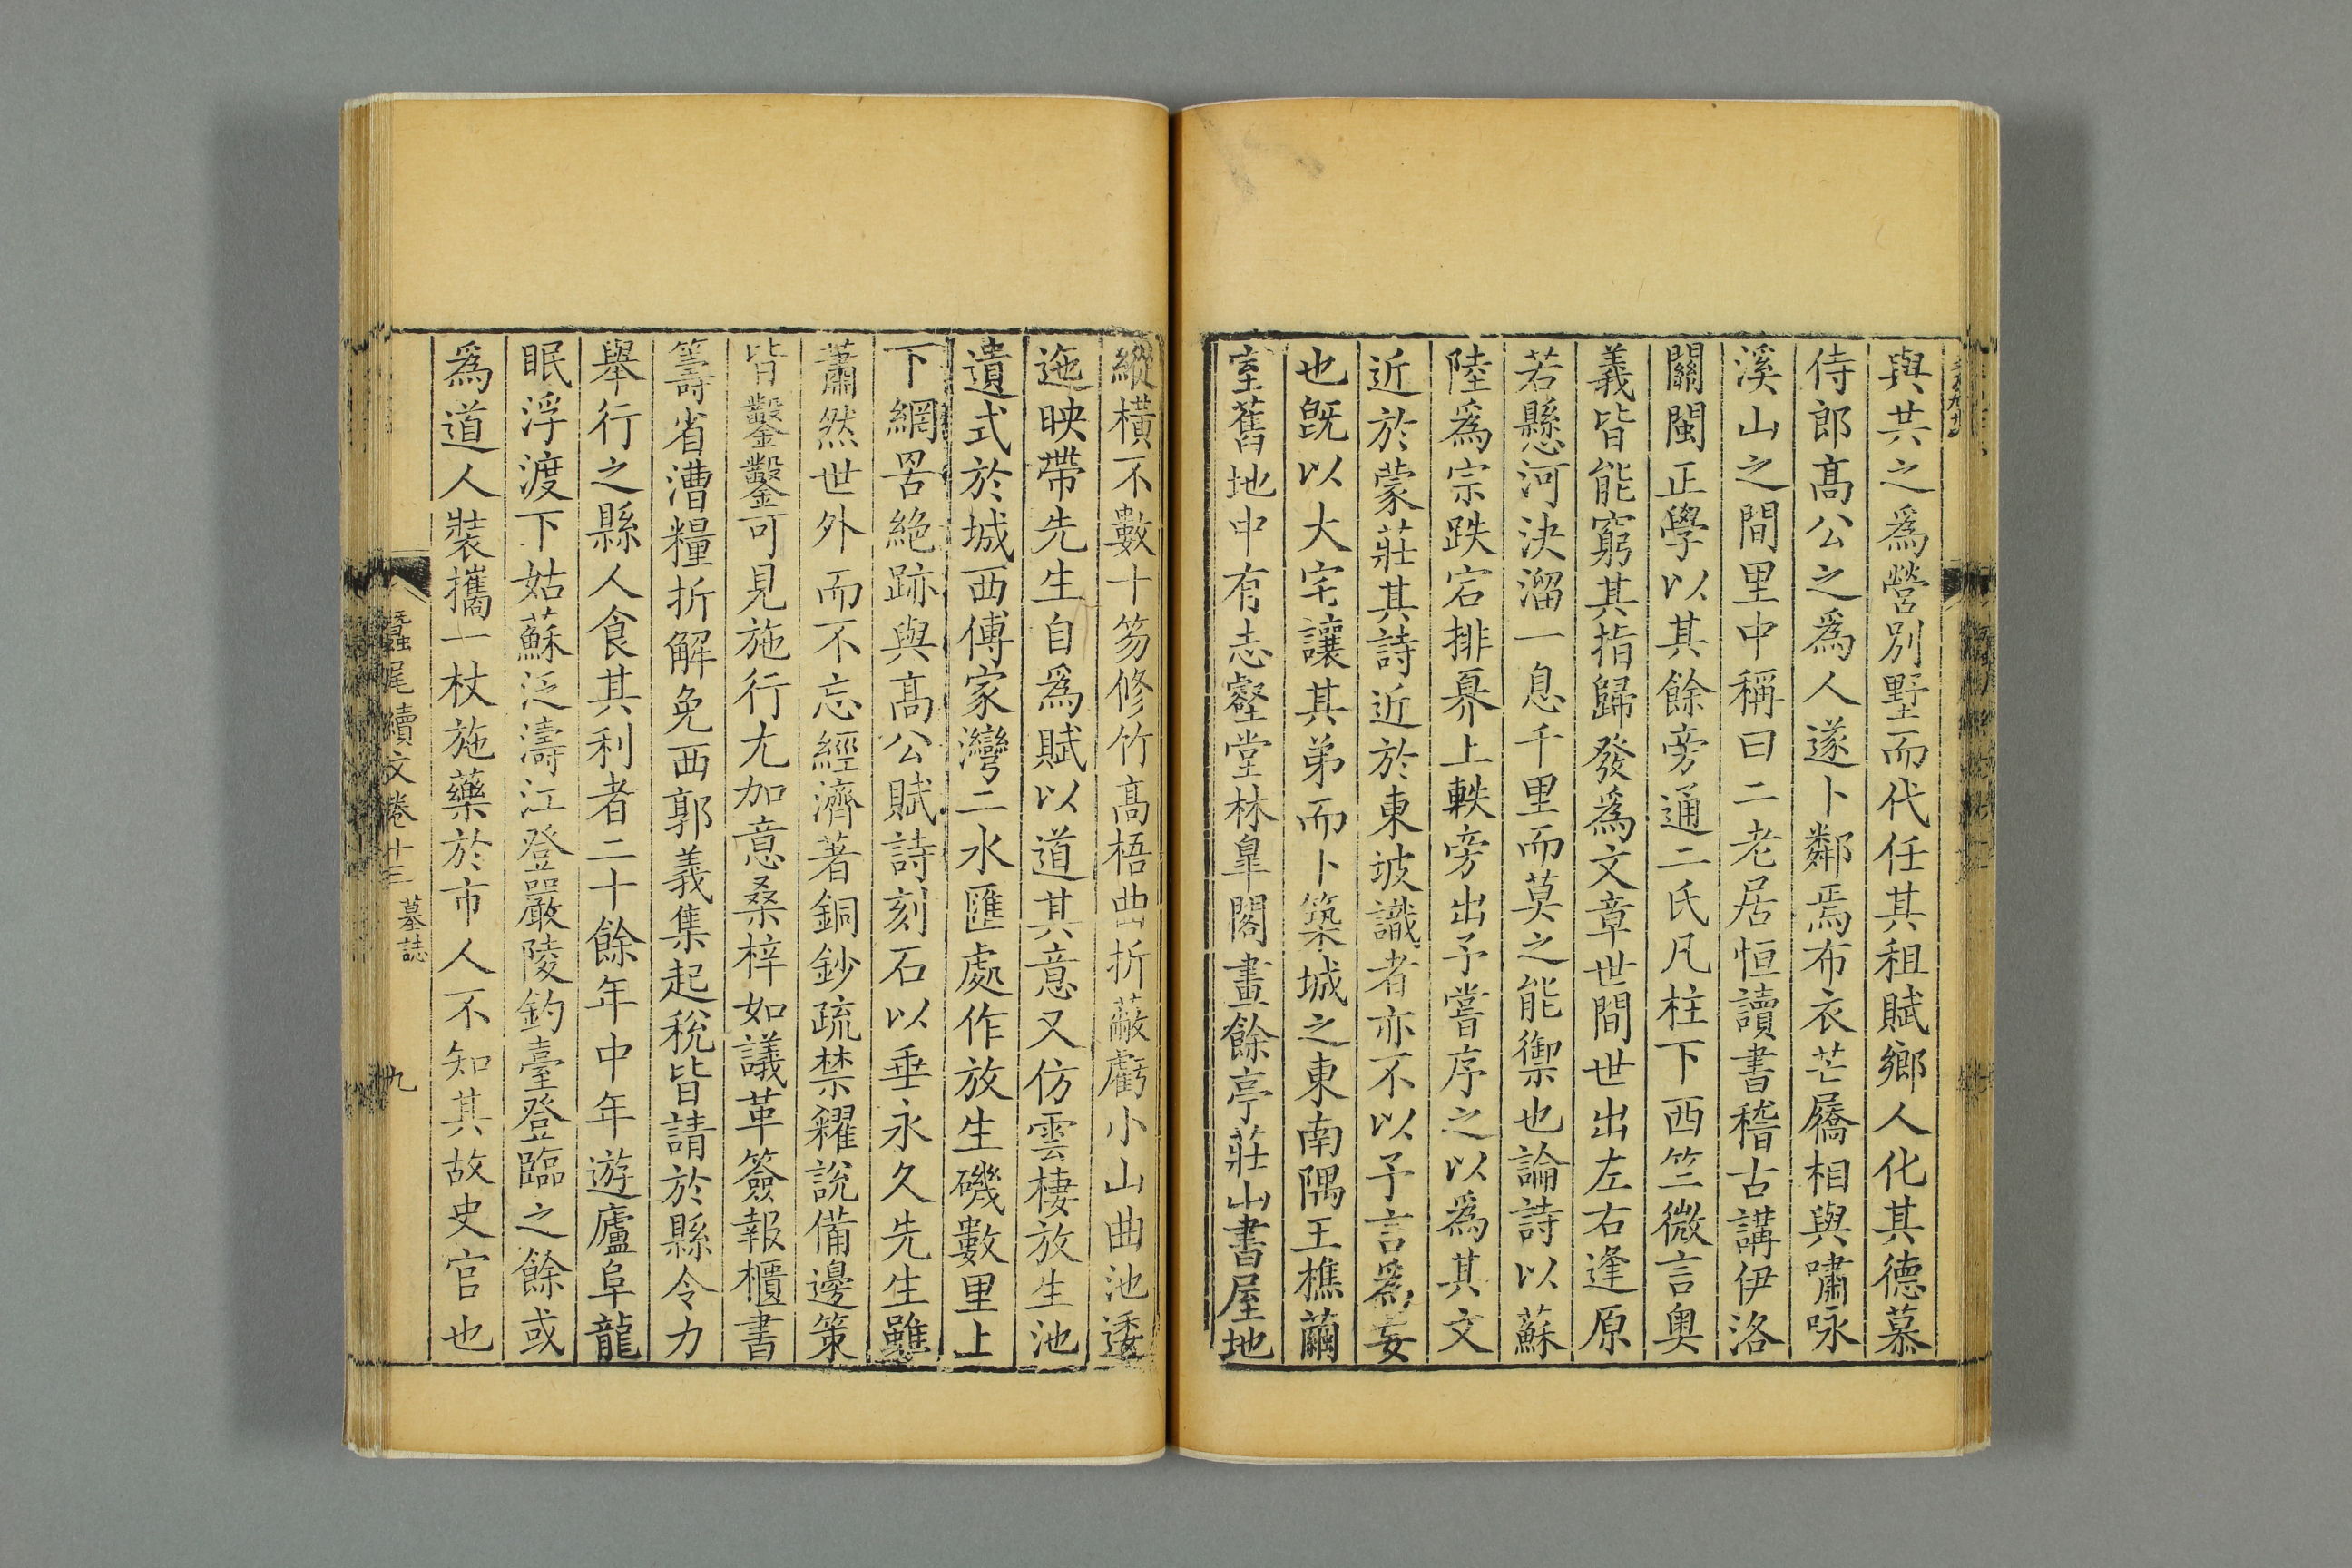 與共之爲營別墅而代任其租賦鄉人化其德慕
侍郎髙公之爲人遂卜鄰焉布衣芒屩相與嘯咏
溪山之間里中稱曰二老居恒讀書稽古講伊洛
關閩正學以其餘旁通二氏凡柱下西竺微言奥
義皆能窮其指歸發爲文章世間世出左右逢原
若懸河決溜一息千里而莫之能禦也論詩以蘇
陸爲宗跌宕排奡上軼旁出予嘗序之以爲其文
近於蒙莊其詩近於東坡識者亦不以予言爲妄
也旣以大宅讓其弟而卜築城之東南隅王樵繭
室舊地中有志壑堂林臯閣畫餘亭莊山書屋地
縱橫不數十笏修竹髙梧曲折蔽虧小山曲池逶
迤映帶先生自爲賦以道其意又仿雲棲放生池
遺式於城西傅家灣二水匯處作放生磯數里上
下網罟絶跡與髙公賦詩刻石以垂永久先生雖
蕭然世外而不忘經濟著銅鈔疏禁糴說備邊策
皆鑿鑿可見施行尤加意桑梓如議革簽報櫃書
籌省漕糧折解免西郭義集起稅皆請於縣令力
舉行之縣人食其利者二十餘年中年遊廬阜龍
眠浮渡下姑蘇泛濤江登嚴陵釣臺登臨之餘或
爲道人裝攜一杖施藥於市人不知其故史官也
蠶尾續文卷十三 墓誌 九